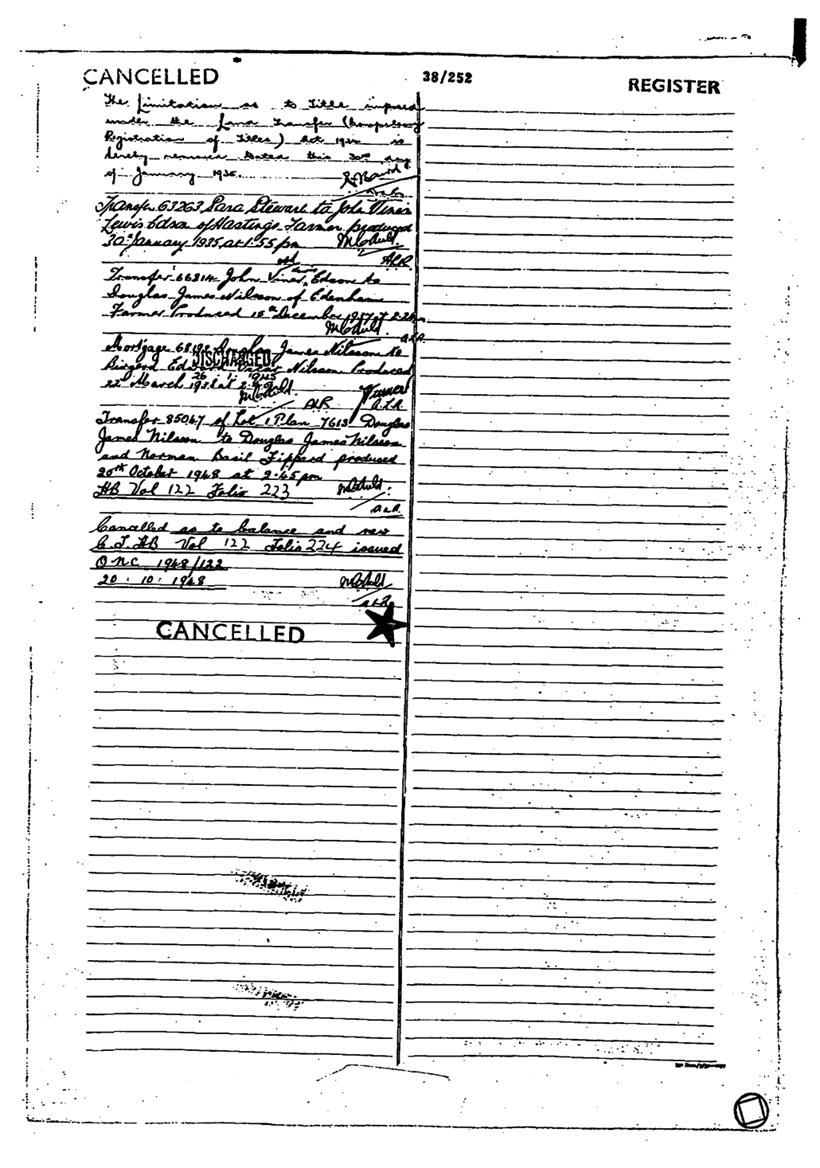 CANCELLED
38/252
REGISTER
The limitation as to Title imposed
under the Land Transfer (Compulsory
Registration of Titles) Act 1924 is
hereby removed Dated this 30th day
of January 1935.
Transfer 63263 Sara Stewart to John Viner
Lewis Edson of Hastings Farmer produced
30th January 1935 at 1.55 pm
A.L.R.
Transfer 66814 John Viner Lewis Edson to
Douglas James Nilsson of Edenham
Farmer Produced 15th December 1937 at
A.L.R.
Mortgage James Nilsson to
DISCHARGED
Nilsson Produced
22nd March at
ALR
A.L.R.
Transfer 85047 of Lot 1 Plan 7613 Douglas
James Nilsson to Douglas James Nilsson
and Norman Basil Tippard produced
20th October 1948 at 2.45 pm
HB Vol 122 Folio 223
A.L.R.
Cancelled as to balance and new
C.T. HB Vol 122 Folio 224 issued
O.N.C. 1948/122
20.10.1948
A.L.R.
CANCELLED